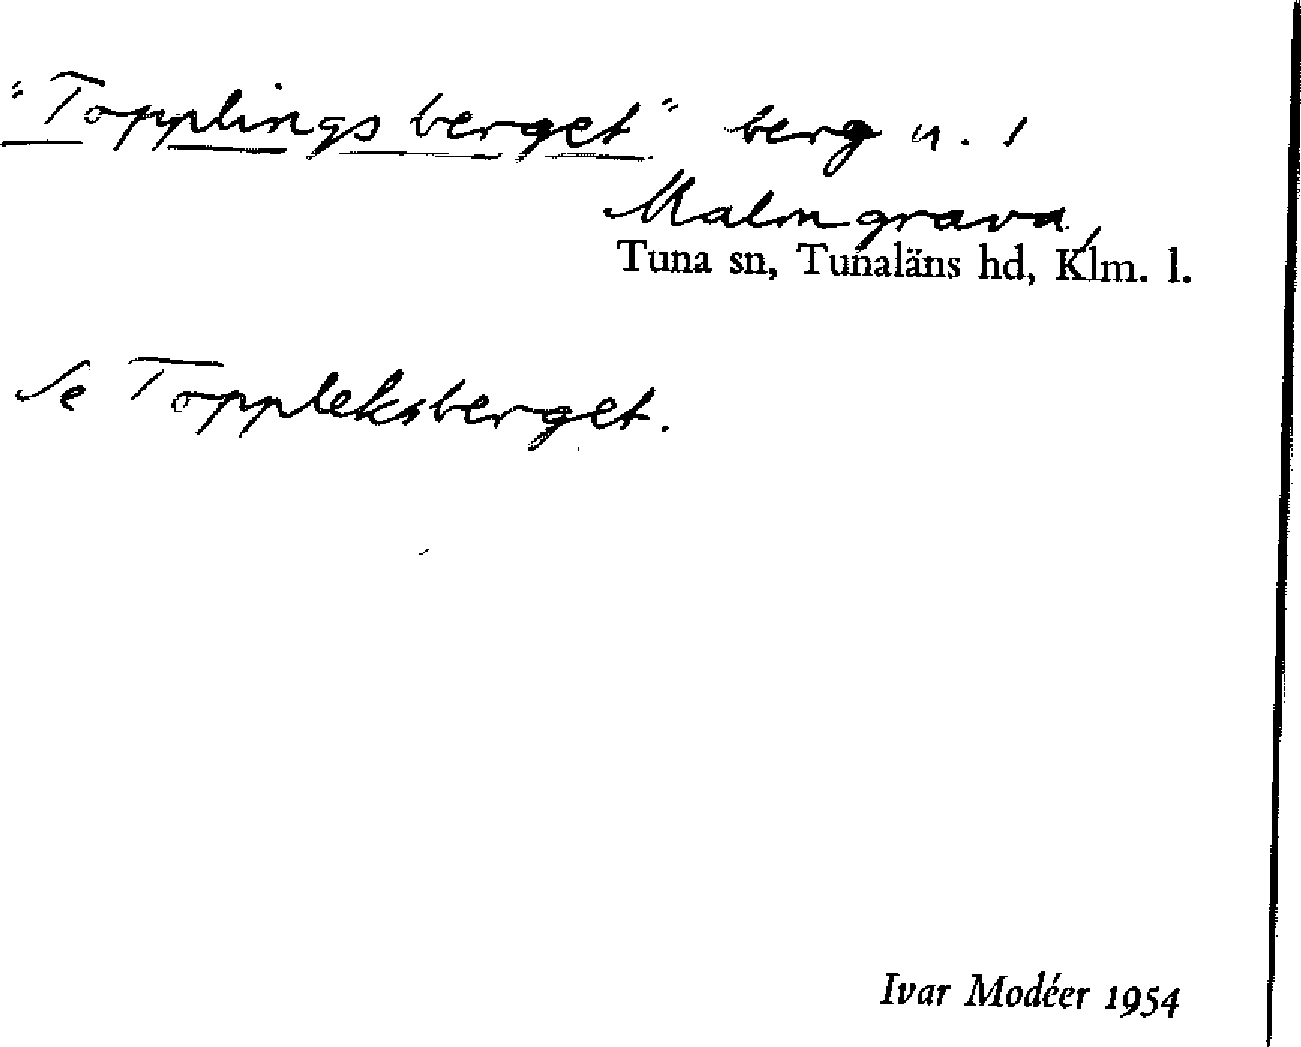 "Topplingsberget" berg n. 1
Malmgrava,
Tuna sn, Tunaläns hd, Klm. l.
Se Toppleksberget.
Ivar Modéer 1954